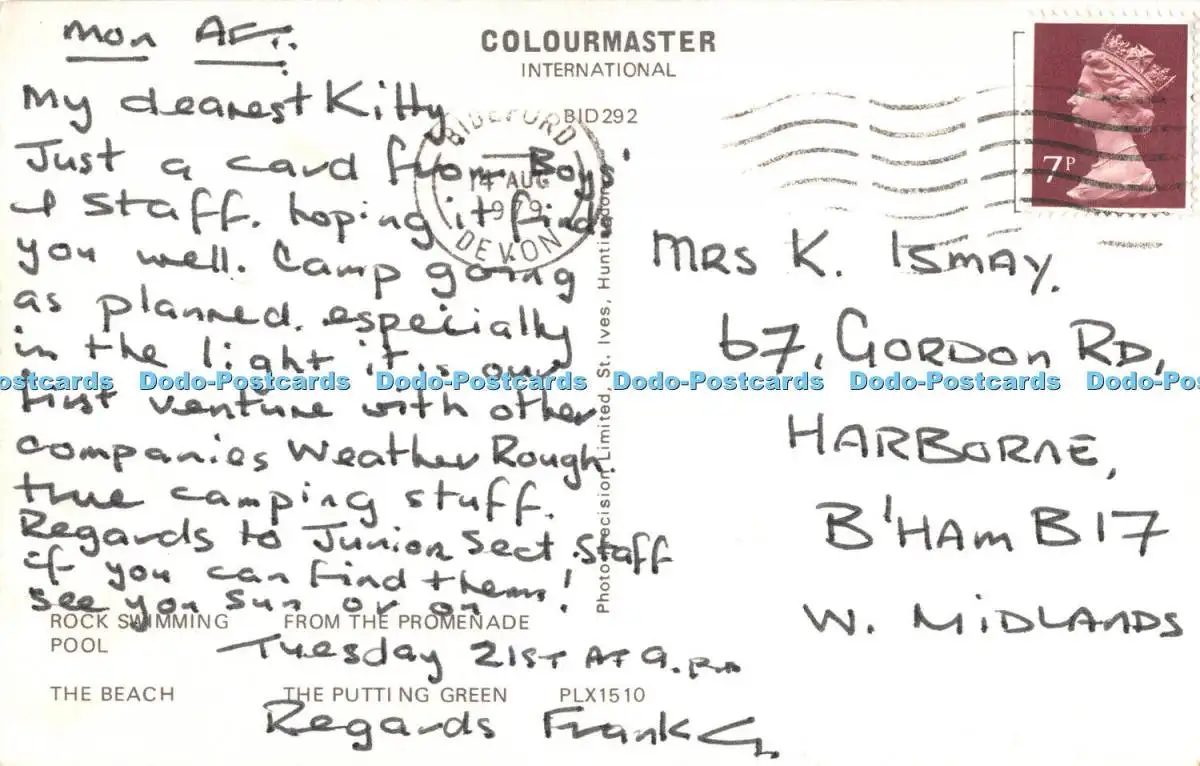 Mon Aft.
My dearest Kitty
Just a card from Boys'
& Staff. hoping it finds
you well. Camp going
as planned. especially
in the light it is our
first venture with other
companies Weather Rough.
true camping stuff.
Regards to Junior Sect. Staff
if you can find them!
see you Sun or on
Tuesday 21ST AT 9.pm
Regards Frank G.
COLOURMASTER
INTERNATIONAL
BID292
BIDEFORD
14 AUG
1979
DEVON
7P
MRS K. ISMAY.
67, GORDON RD,
HARBORNE,
B'HAM B17
W. MIDLANDS
Photo Precision Limited, St. Ives, Huntingdon
ROCK SWIMMING POOL
FROM THE PROMENADE
THE BEACH
THE PUTTING GREEN
PLX1510
Dodo-Postcards Dodo-Postcards Dodo-Postcards Dodo-Postcards Dodo-Postcards